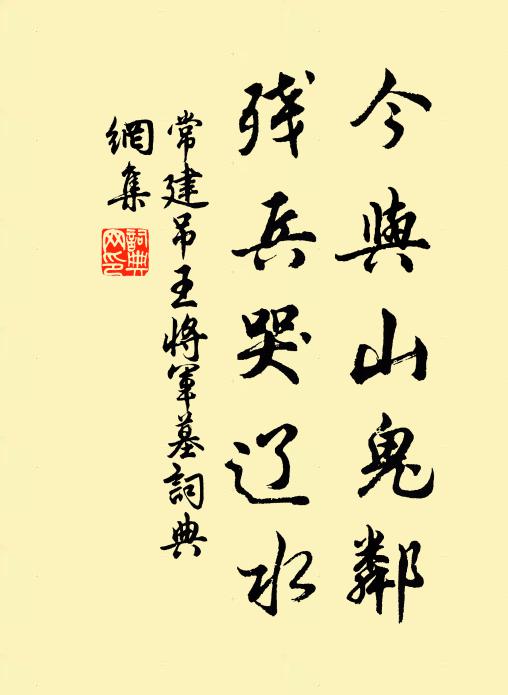 今與山鬼鄰
残兵哭辽水
常建吊王將軍墓詞典
網集
詞典网印